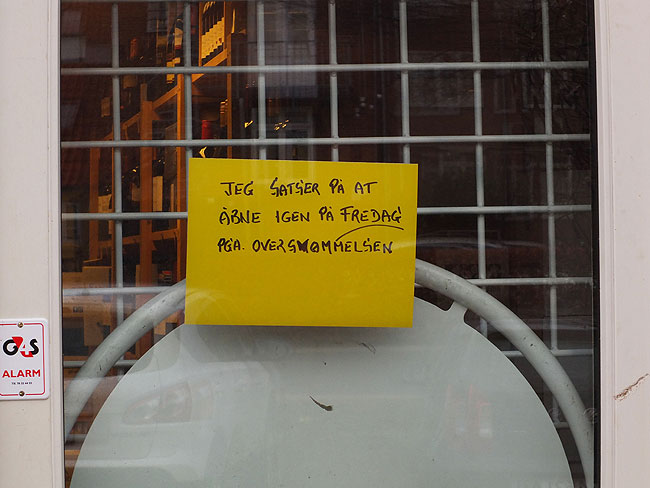 JEG SATSER PÅ AT
ÅBNE IGEN PÅ FREDAG!
PGA. OVERSVØMMELSEN
G4S
ALARM